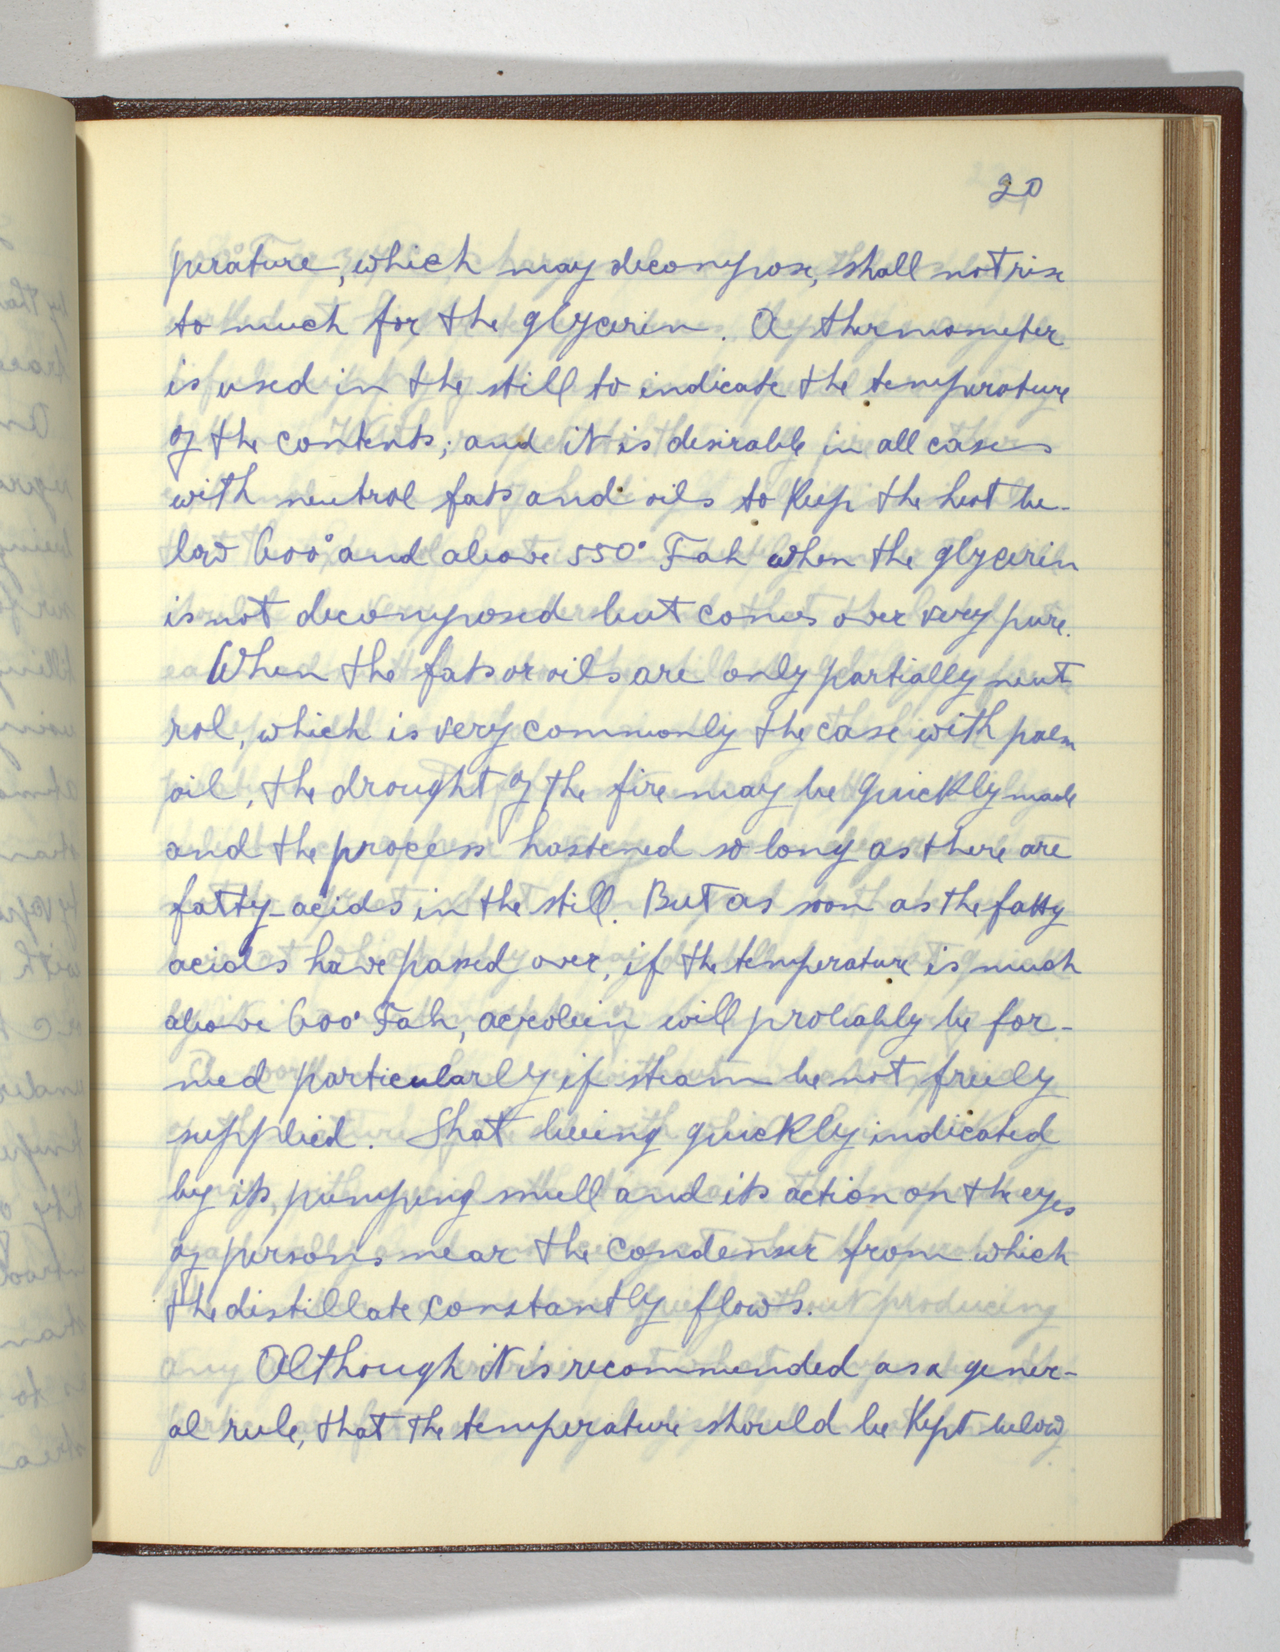 20
perature, which may decompose, shall not rise
to much for the glycerin. A thermometer
is used in the still to indicate the temperature
of the contents; and it is desirable in all cases
with neutral fats and oils to keep the heat be-
low 600° and above 550° Fah when the glycerin
is not decomposed but comes over very pure.
When the fats or oils are only partially neut
ral, which is very commonly the case with palm
oil, the drought of the fire may be quickly made
and the process hastened so long as there are
fatty acids in the still. But as soon as the fatty
acids have passed over, if the temperature is much
above 600° Fah, acrolein will probably be for-
med particularly if steam be not freely
supplied. That being quickly indicated
by its pumping smell and its action on the eyes
of persons near the condenser from which
the distillate constantly flows.
Although it is recommended as a gener-
al rule, that the temperature should be kept below